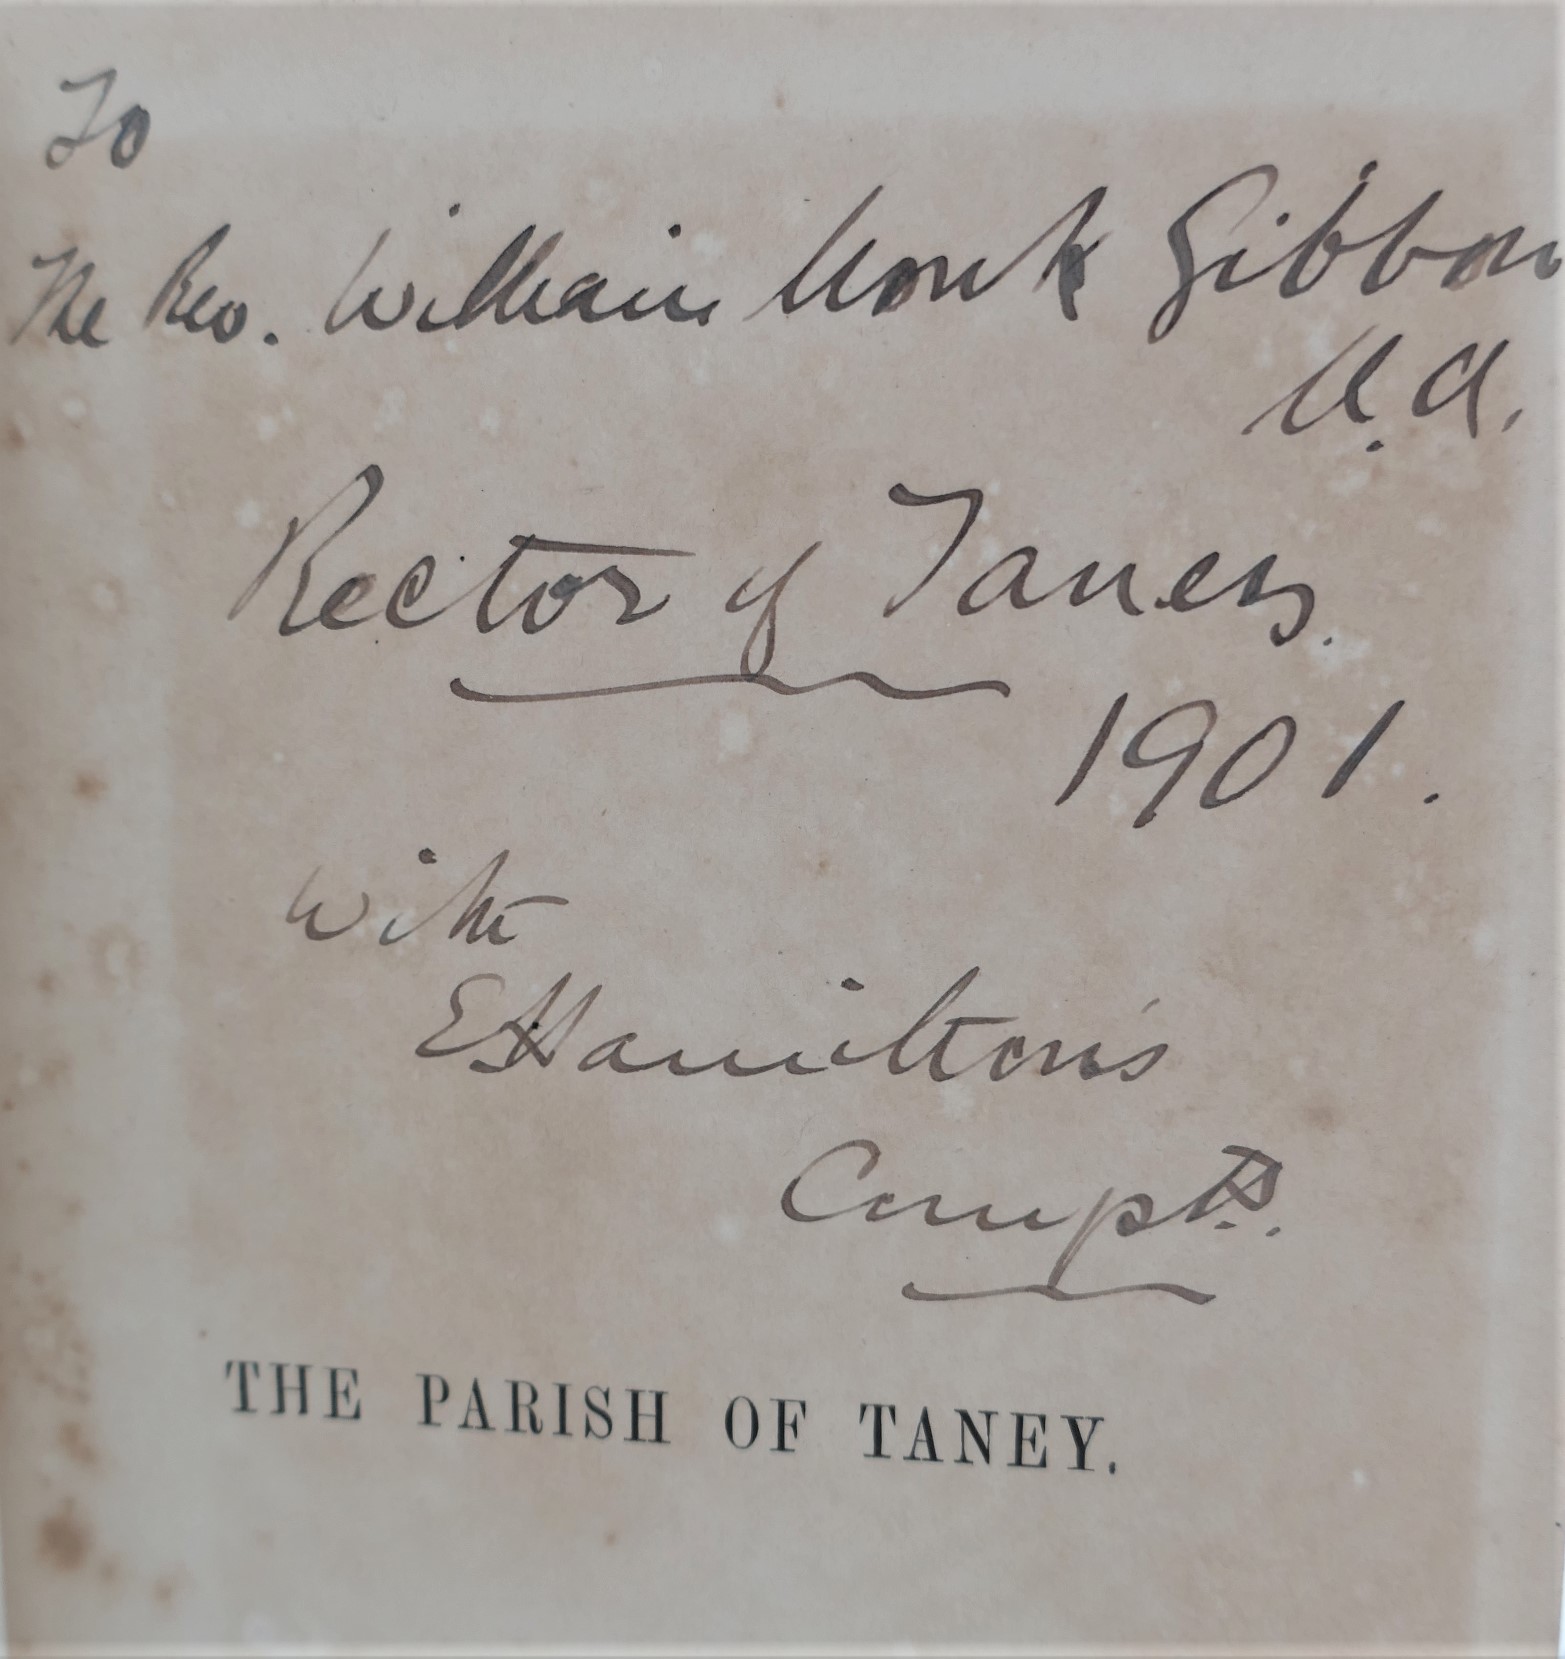 To
The Rev. William Monk Gibbon
M.A.
Rector of Taney.
1901.
with
EHamilton's
Compts.
THE PARISH OF TANEY.